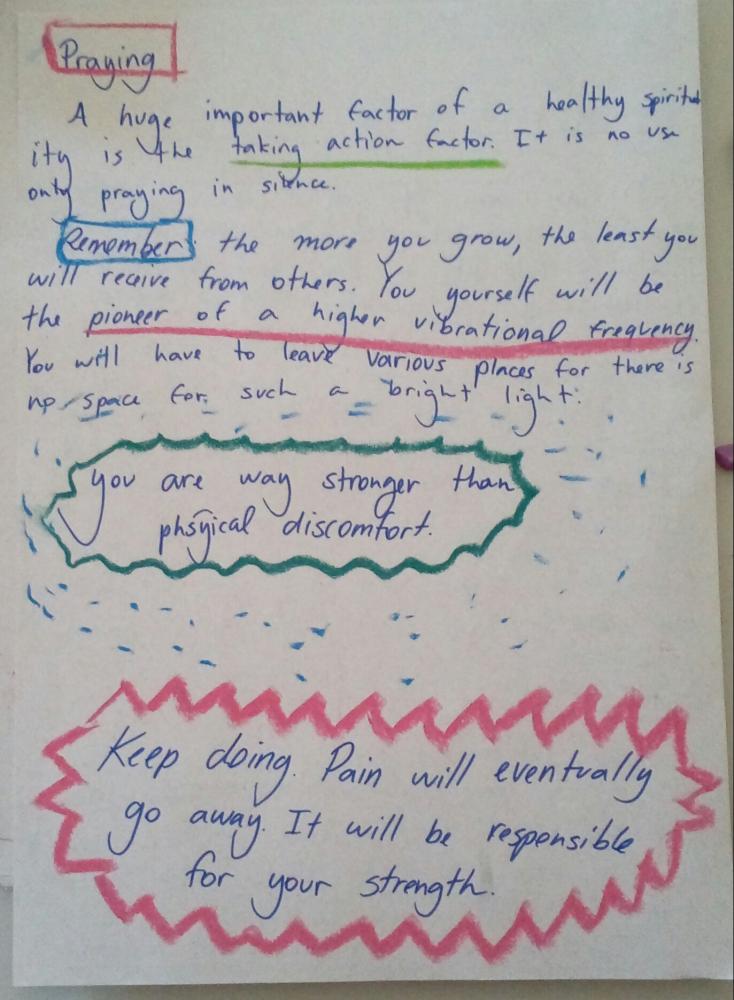 Praying
A huge important factor of a healthy spiritual
ity is the taking action factor. It is no use
only praying in silence.
Remember: the more you grow, the least you
will receive from others. You yourself will be
the pioneer of a higher vibrational frequency.
You will have to leave various places for there is
no space for such a bright light.
you are way stronger than
phsyical discomfort.
Keep doing. Pain will eventually
go away. It will be responsible
for your strength.